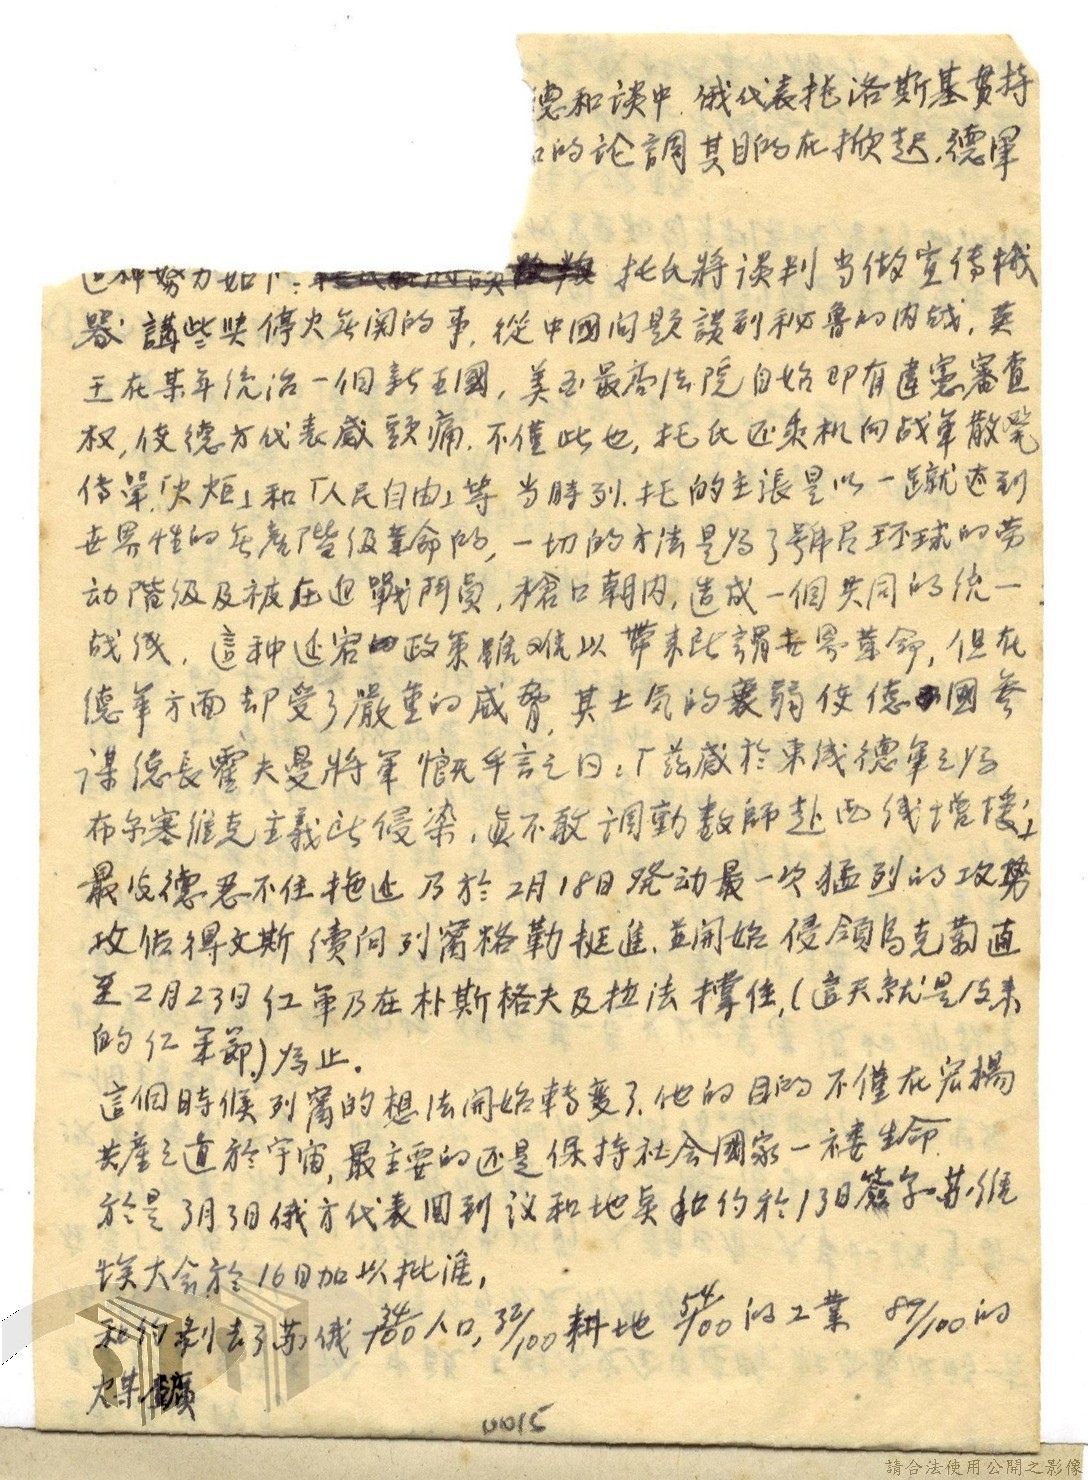 德和谈中.俄代表托洛斯基贯持
的论調其目的在掀起.德軍
這种努力如下: 托氏將谈判当做宣傳機
器.講些與停火無関的事.從中國问题談到秘魯的内战,英
王在某年統治一個新王國,美国最高法院自始即有違憲審查
权,使德方代表感頭痛.不僅此也,托氏还乘机向战軍散発
傳單.「火炬」和「人民自由」等 当時列.托的主張是以一蹴就达到
世界性的無產階级革命的,一切的方法是为了號召环球的劳
动階级及被压迫戰鬥員,槍口朝内,造成一個共同的統一
战线.這种 政策雖难以帶来所謂世界革命,但在
德軍方面却受了嚴重的威脅,其士气的衰弱使德國参
謀總長霍夫曼將軍慨乎言之曰:「茲感於東线德軍之为
布尔塞維克主義所侵染,真不敢调動数師赴西线增援」
最后德忍不住拖延乃於2月18日発动最一次猛烈的攻势
攻佔得文斯續向列甯格勒挺進.並開始侵領烏克蘭直
至2月23日红軍乃在朴斯格夫及拉法撑住,(這天就是后来
的红軍節)为止.
這個時候列甯的想法開始轉變了.他的目的不僅在宏揚
共產之道於宇宙,最主要的还是保持社会國家一褛生命.
於是3月3日俄方代表回到议和地点和约於13日簽字.苏維
埃大会於16日加以批准,
和约割去了苏俄34/100人口,32/100耕地 54/100的工業 89/100的
煤礦
0015
請合法使用公開之影像